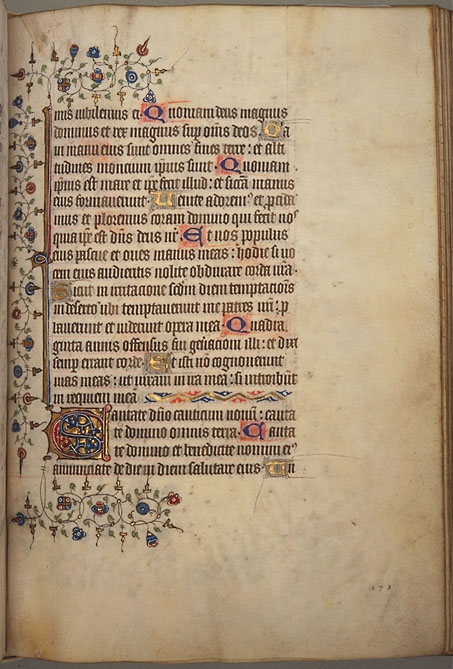 mus iubilemus ei. Quoniam deus magnus
dominus et rex magnus sup om̄s deos. Q̄a
in manu eius sunt omnes fines terre: et alti
tudines moncium ipsius sunt. Quoniam
ipsius est mare et ip̄e fecit illud: et siccā manus
eius formauerunt. Uenite adorem9 et p̄cida
mus et ploremus coram domino qui fecit nos
quia ip̄e est dn̄s deus nr̄. Et nos populus
eius pascue et oues manus meas: hodie si uo
cem eius audieritis nolite obdurare corda ur̄a.
Sicut in irritacione scd̄m diem temptacionis
in deserto ubi temptauerunt me patres ur̄i: p
bauerunt et uiderunt opera mea. Quadra
ginta annis offensus fui gen̄acioni illi: et dixi
semp errant corde. Et isti nō cognouerunt
uias meas: ut iuraui in ira mea: si introibūt
in requiem meā
Cantate dn̄o canticum nouū: canta
te domino omnis terra. Canta
te domino et benedicite nomini ei9
annunciate de die in diem salutare eius. An